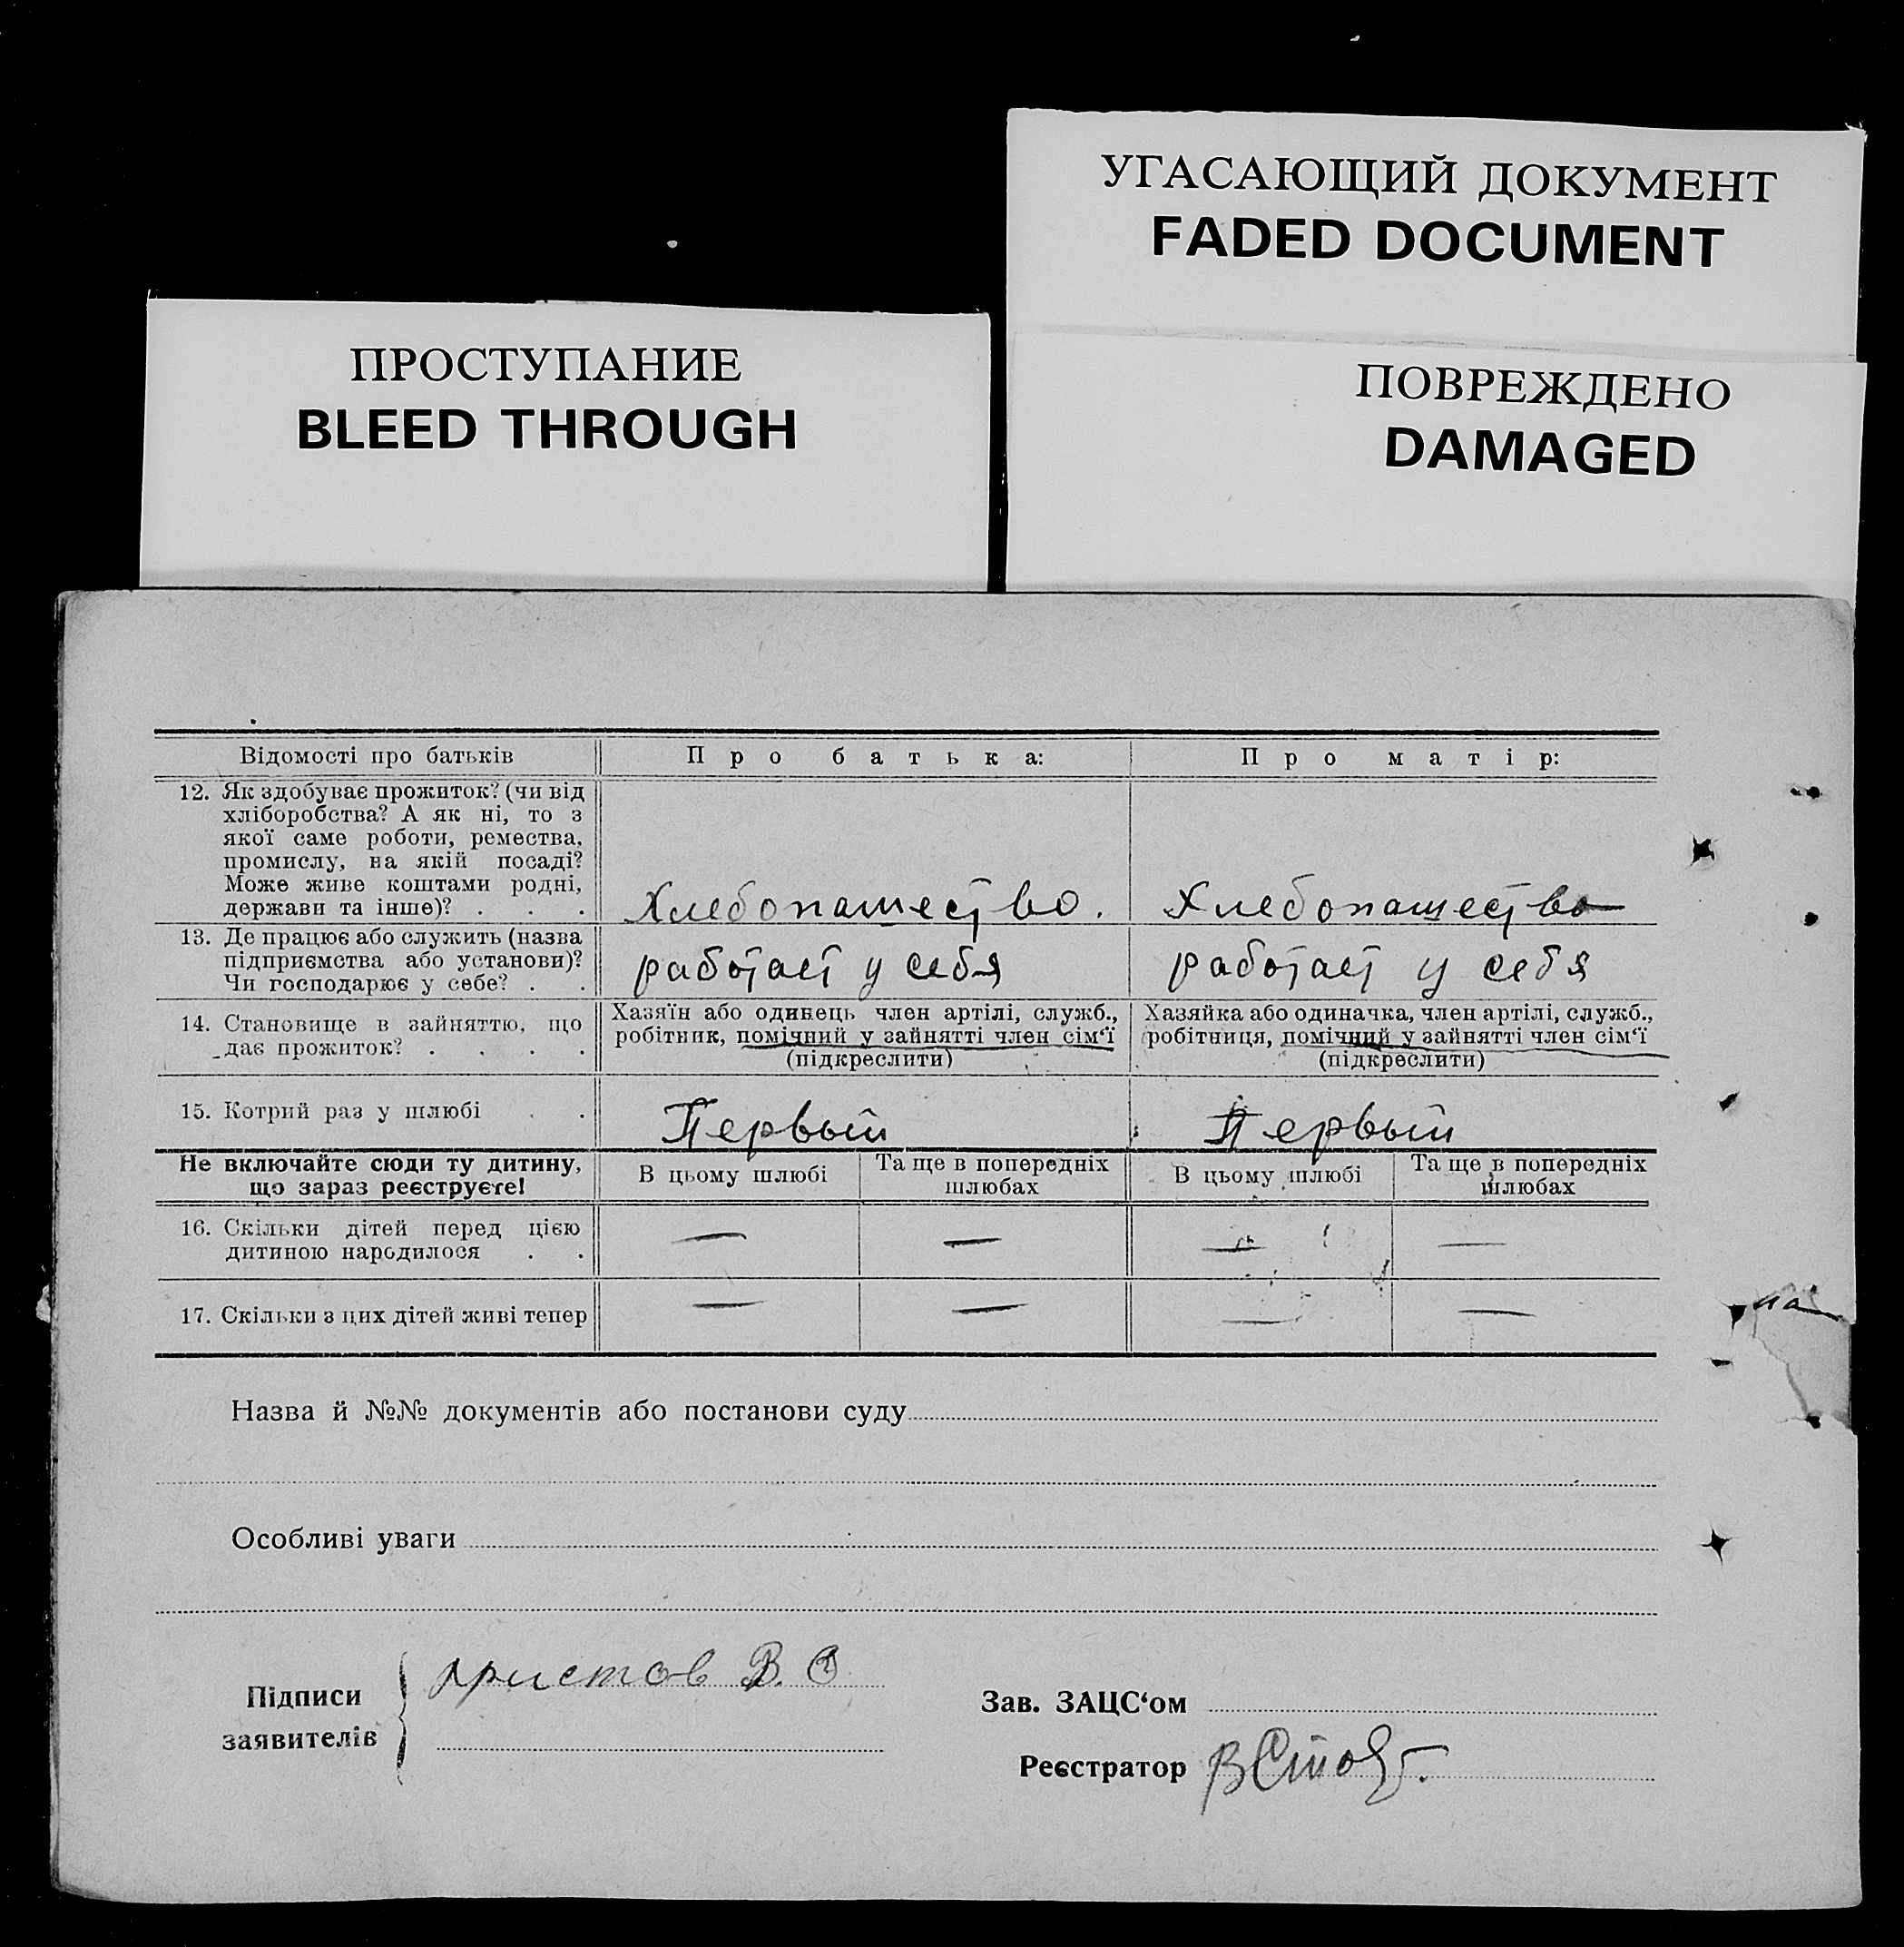 УГАСАЮЩИЙ ДОКУМЕНТ
FADED DOCUMENT
ПРОСТУПАНИЕ
BLEED THROUGH
ПОВРЕЖДЕНО
DAMAGED
Відомості про батьків Про батька: Про матір:
12. Як здобуває прожиток? (чи від
хліборобства? А як ні, то з
якої саме роботи, ремества,
промислу, на якій посаді?
Може живе коштами родні,
держави та інше)? . . .
Хлебопашество. Хлебопашество
13. Де працює або служить (назва
підприємства або установи)?
Чи господарює у себе? . .
работает у себя работает у себя
14. Становище в зайняттю, що
дає прожиток? . . . .
Хазяїн або одинець член артілі, служб.,
робітник, помічний у зайнятті член сім‘ї
(підкреслити)
Хазяйка або одиначка, член артілі, служб.,
робітниця, помічний у зайнятті член сім‘ї
(підкреслити)
15. Котрий раз у шлюбі . . Первый Первый
Не включайте сюди ту дитину,
що зараз реєструєте!
В цьому шлюбі
Та ще в попередніх
шлюбах
В цьому шлюбі
Та ще в попередніх
шлюбах
16. Скільки дітей перед цією
дитиною народилося . .
— — — —
17. Скільки з цих дітей живі тепер — — — —
Назва й №№ документів або постанови суду
Особливі уваги
Підписи
заявителів
христов В. С
Зав. ЗАЦС‘ом
Реєстратор